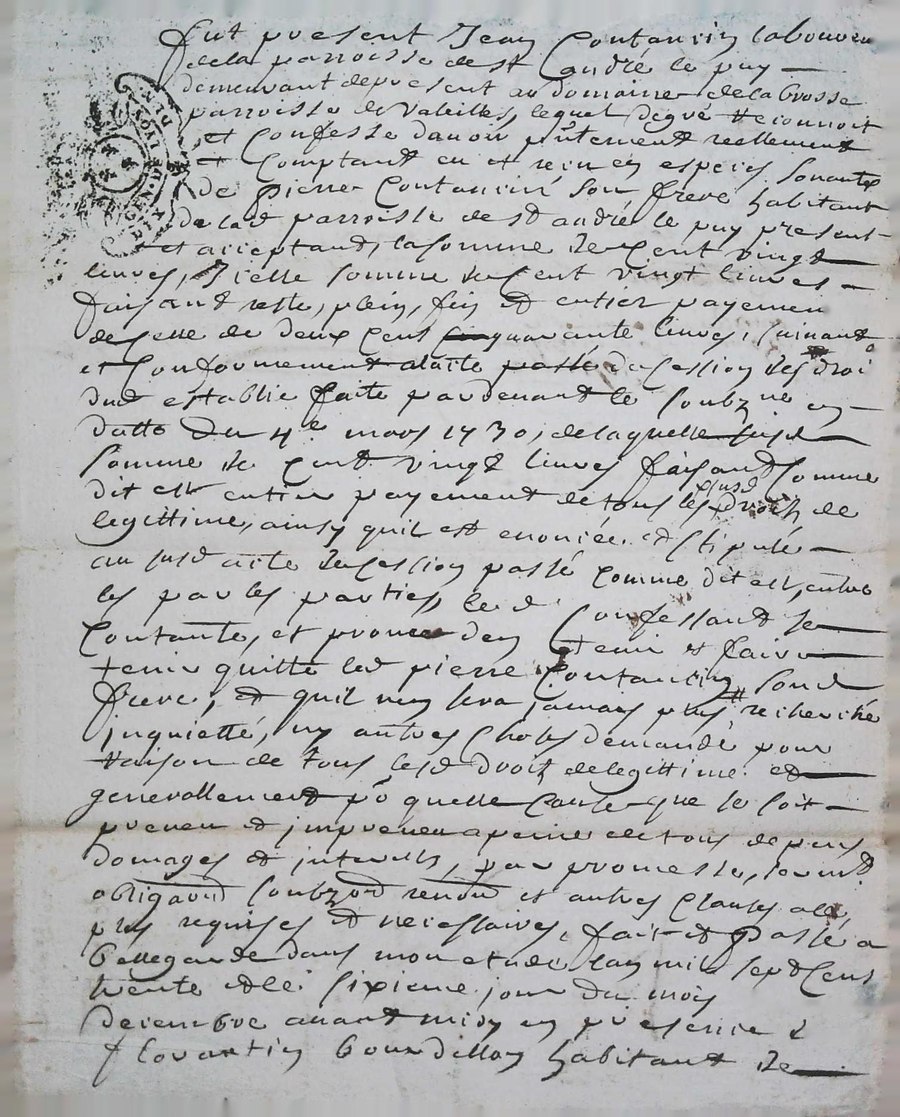 fut present Jean Coutancin laboureu
de la parroisse de st André le puy
demeurant de present au domaine de la brosse
parroisse de Valeilles, lequel de gré reconnoit
et Confesse d'avoir pntement reellement
et Comptant eu et receu en especes sonantes
de pierre Coutancin son frere habitant
de lad parroisse de st andré le puy present
et acceptand, la somme de Cent vingt
livres, Icelle somme de Cent vingt livres
faisand reste, plein, fin et entier payemen
de celle de deux Cent quarante livres, suivand
et Conformement alacte de cession des droi
dud establie faite pardevant le soubzne en
datte du 4e mars 1730, de laquelle susd
somme de Cent vingt livres faisand Comme
dit est entier payement de tous les susd droits de
legittime, ainsy quil est enoncée et stipulé
au susd acte de cession passé comme dit est, entre
les parties, led Confessand se
Contante, et promet den tenir et faire
tenir quitte led pierre Coutancin sond
frere, et quil ny sera jamais plus recherché
inquietté, ny autres Choses demandé pour
raison de tous lesd droit de legittime et
generallement po quelle Cause que se soit
preveu et impreveu a peine de tous depens
domages et interets, par promesse, sermt
obligaon soubzon renon et autres Clauses all
plus requises et necessaires, fait et passé a
Bellegarde dans mon etude lan mil sept Cent
trente et le sixieme jour du mois
decembre avant midy en presence de
florantin bourdillon habitant de